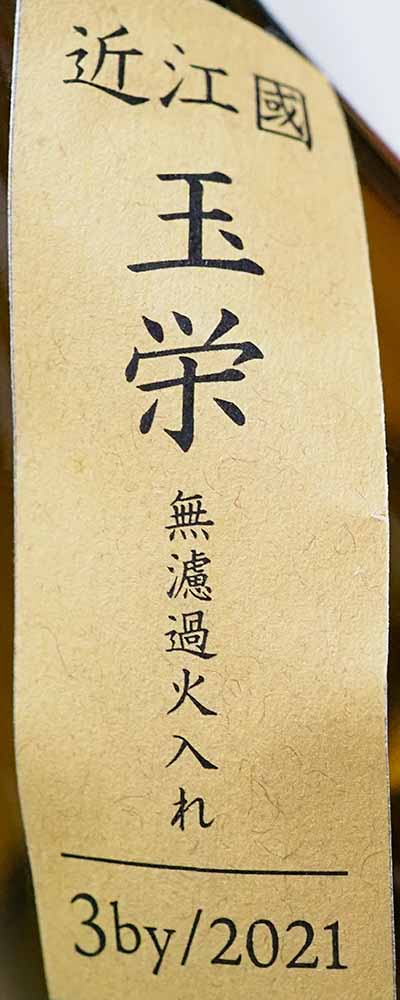 近江國
玉栄
無濾過火入れ
3by/2021